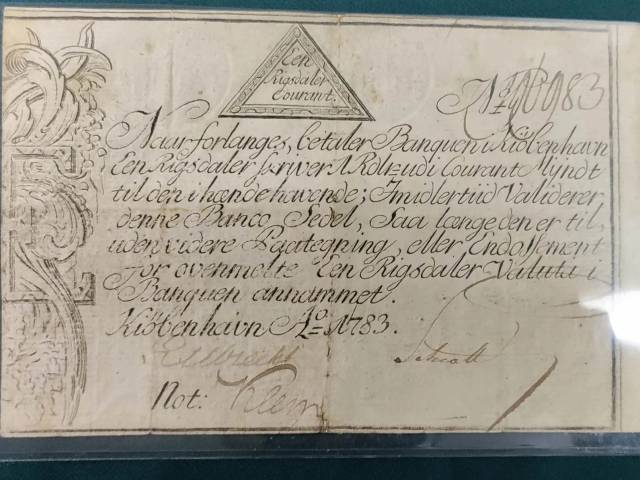 Een
Rigsdaler
Courant.
Naar forlanges, betaler Banquen i Kiöbenhavn
Een Rigsdaler skriver 1 Rdlr: udi Courant Myndt
til den i hænde havende; Imidlertiid Validerer
denne Banco Sedel, Saa længe den er til,
uden videre Paategning, eller Endossement
for ovenmelte Een Rigsdaler Valuta i
Banquen annammet.
Kiöbenhavn Aº 1783.
Schiött
Not: Klem